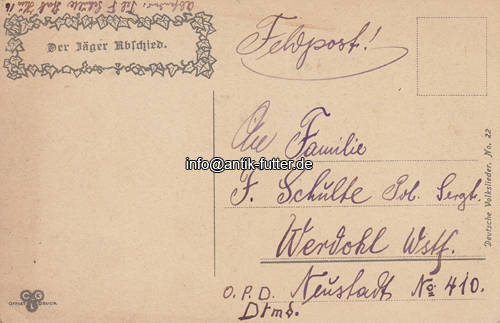 Absender:
Der Jäger Abschied.
Feldpost!
An Familie
info@antik-futter.de
F. Schulte Pol. Sergt.
Werdohl Westf.
O.P.D. Neustadt No 410.
Dtmd.
Deutsche Volkslieder. No. 22
C G L
OFFSET DRUCK